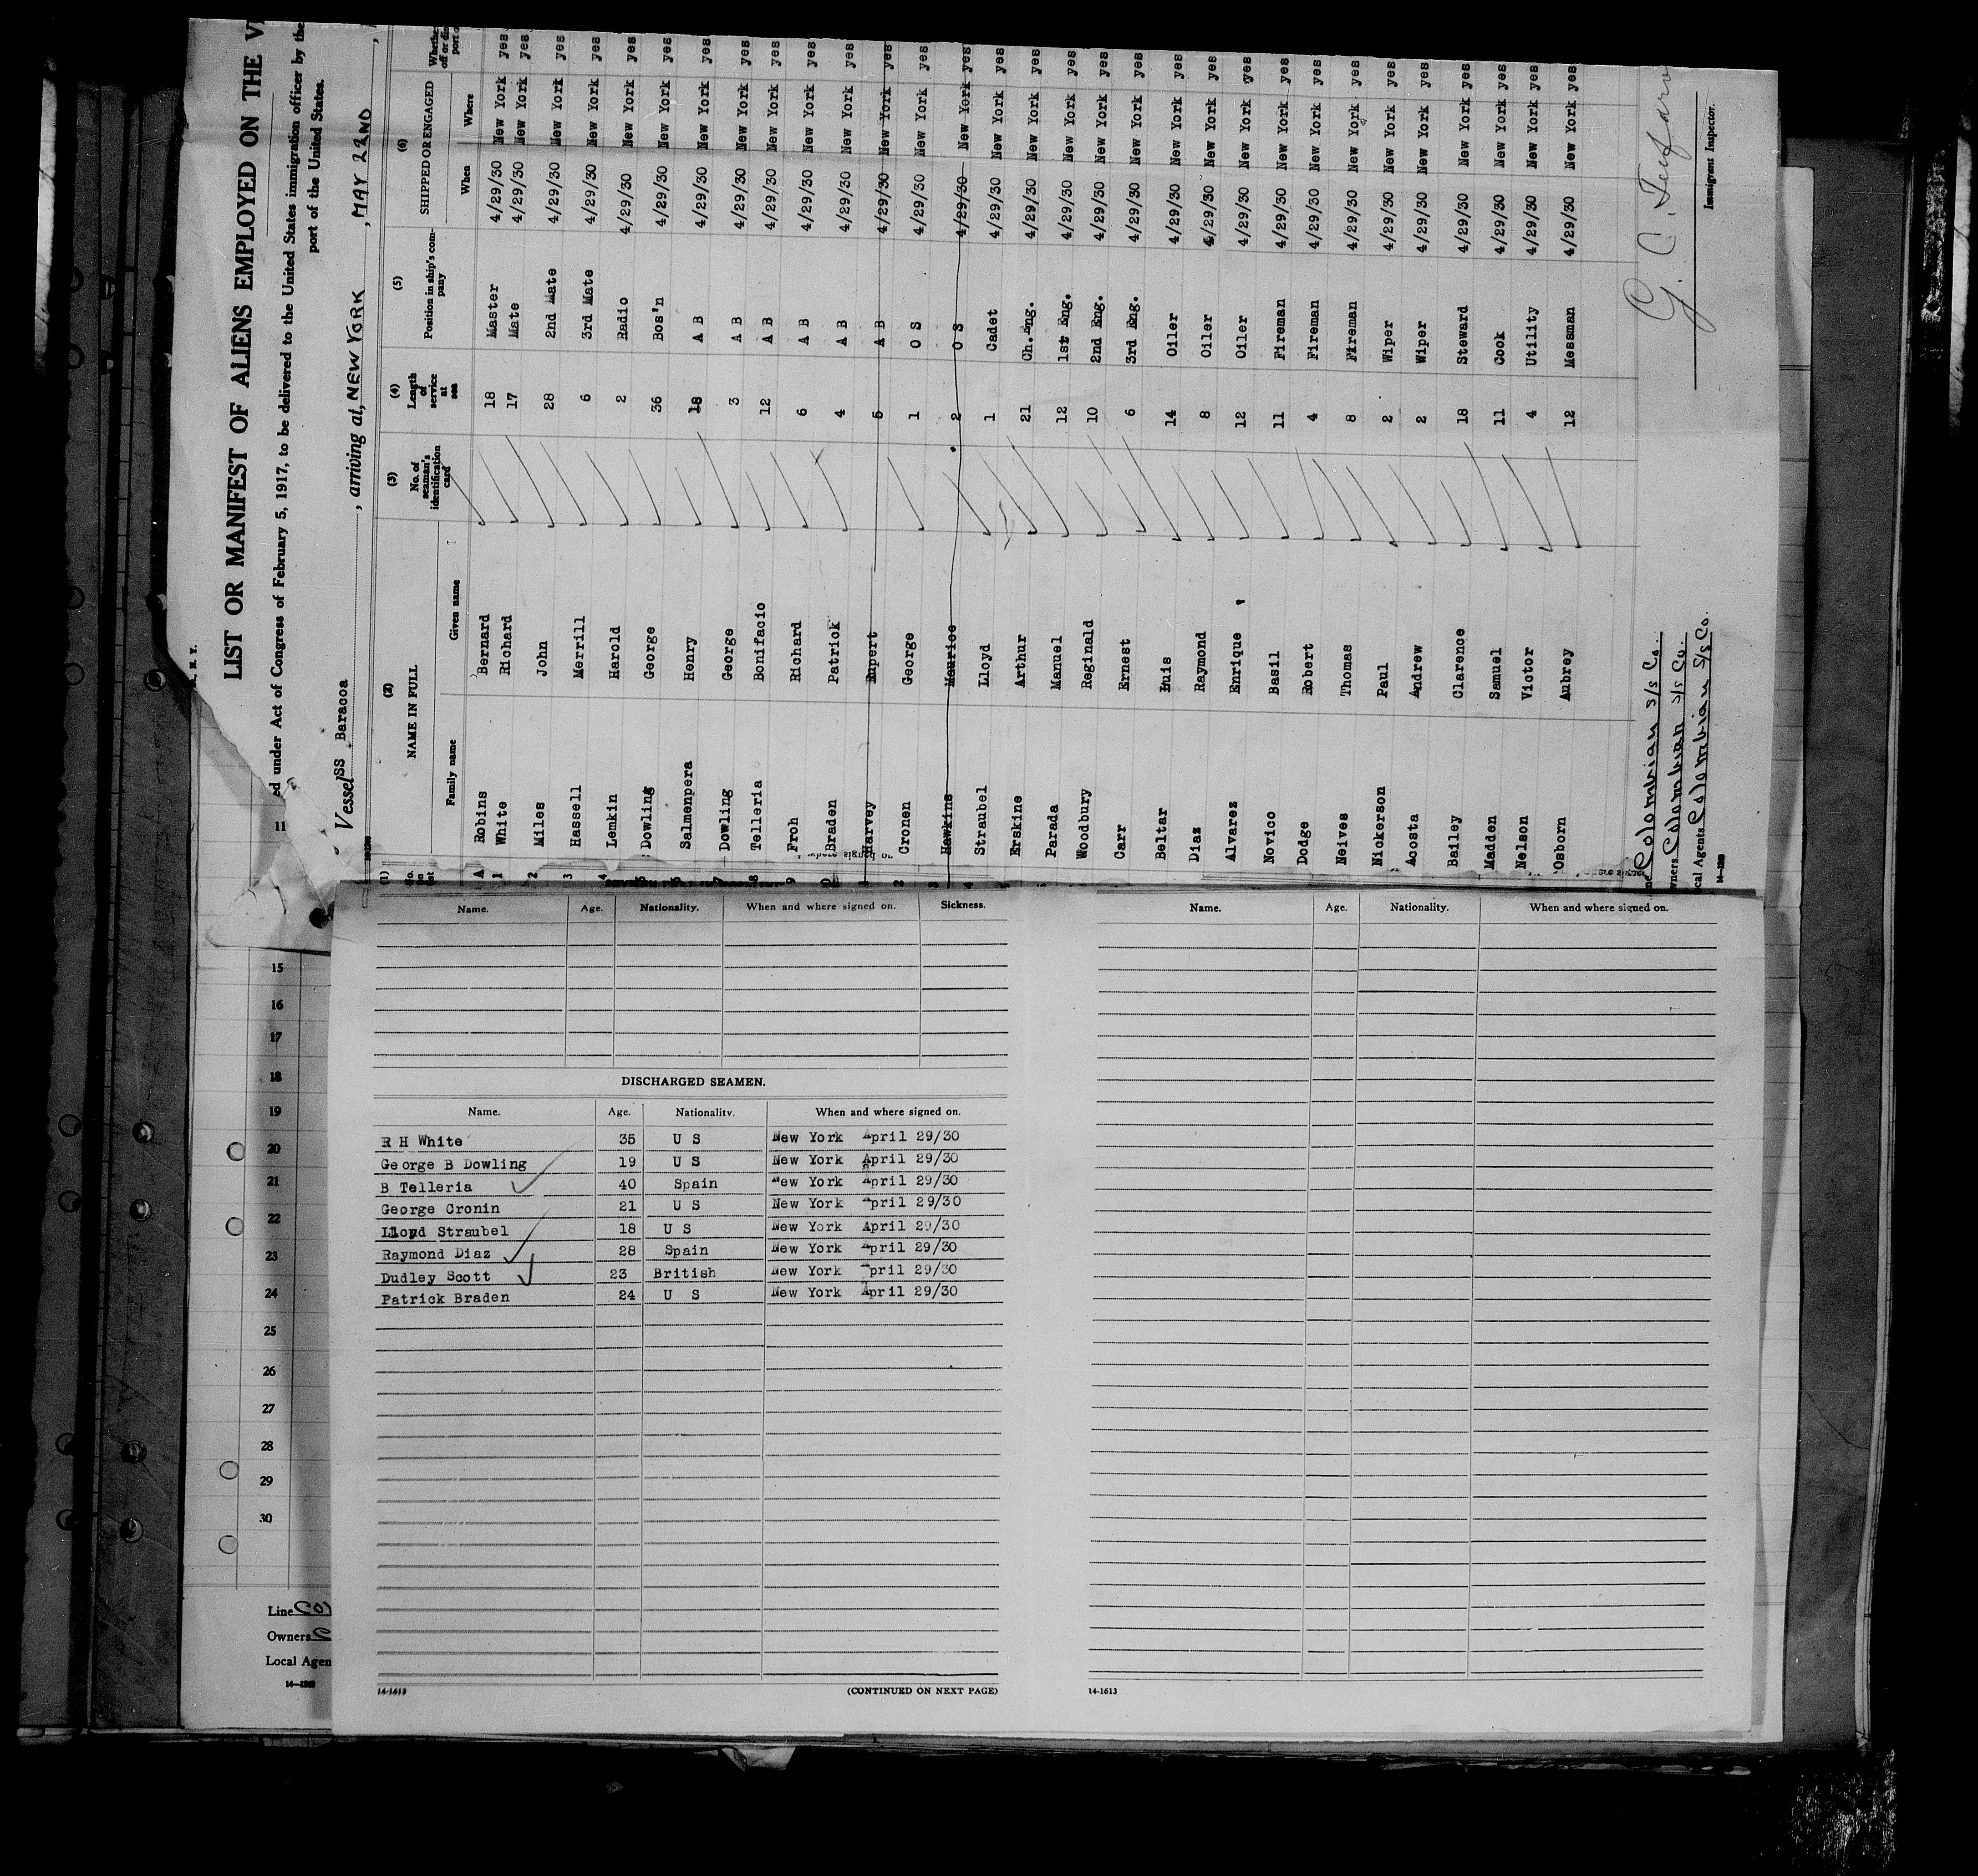 LIST OR MANIFEST OF ALIENS EMPLOYED ON THE
ed under Act of Congress of February 5, 1917, to be delivered to the United States immigration officer by the
port of the United States.
Vessel SS Baracoa, arriving at, NEW YORK, MAY 22ND
(1) (2) (3) (4) (5) (6)
NAME IN FULL No. of seaman's identification card Length of service at sea Position in ship's company SHIPPED OR ENGAGED
Family name Given name When Where
Robins Bernard 18 Master 4/29/30 New York yes
1 White Richard 17 Mate 4/29/30 New York yes
2 Miles John 28 2nd Mate 4/29/30 New York yes
3 Hassell Merrill 6 3rd Mate 4/29/30 New York yes
4 Lemkin Harold 2 Radio 4/29/30 New York yes
5 Dowling George 36 Bos'n 4/29/30 New York yes
6 Salmenpera Henry 18 A B 4/29/30 New York yes
7 Dowling George 3 A B 4/29/30 New York yes
8 Telleria Bonifacio 12 A B 4/29/30 New York yes
9 Froh Richard 6 A B 4/29/30 New York yes
Braden Patrick 4 A B 4/29/30 New York yes
Harvey Rupert 5 A B 4/29/30 New York yes
2 Cronen George 1 O S 4/29/30 New York yes
3 Hawkins Maurice 2 O S 4/29/30 New York yes
4 Straubel Lloyd 1 Cadet 4/29/30 New York yes
Erskine Arthur 21 Ch. Eng. 4/29/30 New York yes
Parada Manuel 12 1st Eng. 4/29/30 New York yes
Woodbury Reginald 10 2nd Eng. 4/29/30 New York yes
Carr Ernest 6 3rd Eng. 4/29/30 New York yes
Beltar Luis 14 Oiler 4/29/30 New York yes
Diaz Raymond 8 Oiler 4/29/30 New York yes
Alvarez Enrique 12 Oiler 4/29/30 New York yes
Novico Basil 11 Fireman 4/29/30 New York yes
Dodge Robert 4 Fireman 4/29/30 New York yes
Neives Thomas 8 Fireman 4/29/30 New York yes
Nickerson Paul 2 Wiper 4/29/30 New York yes
Acosta Andrew 2 Wiper 4/29/30 New York yes
Bailey Clarence 18 Steward 4/29/30 New York yes
Madden Samuel 11 Cook 4/29/30 New York yes
Nelson Victor 4 Utility 4/29/30 New York yes
Osborn Aubrey 12 Messman 4/29/30 New York yes
Colombian S/S Co.
wners Colombian S/S Co.
cal Agents Colombian S/S Co.
Immigrant Inspector.
Name. Age. Nationality. When and where signed on. Sickness.
DISCHARGED SEAMEN.
Name. Age. Nationality. When and where signed on.
R H White 35 U S New York April 29/30
George B Dowling 19 U S New York April 29/30
B Telleria 40 Spain New York April 29/30
George Cronin 21 U S New York April 29/30
Lloyd Straubel 18 U S New York April 29/30
Raymond Diaz 28 Spain New York April 29/30
Dudley Scott 23 British New York April 29/30
Patrick Braden 24 U S New York April 29/30
14-1613 (CONTINUED ON NEXT PAGE)
Name. Age. Nationality. When and where signed on.
14-1613
11
15
16
17
18
19
20
21
22
23
24
25
26
27
28
29
30
Line Co
Owners
Local Agen